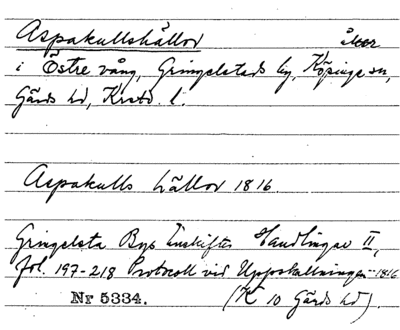 Aspakullshällor åker
i Östre vång, Gringelstads by, Köpinge sn,
Gärds hd, Krstd. l.
Aspakulls hällor 1816.
Gringelsta Byes Enskiftes Handlingar II,
fol. 197-218 Protocoll vid Uppskattningen 1816
Nr 5334. (K 10 Gärds hd).